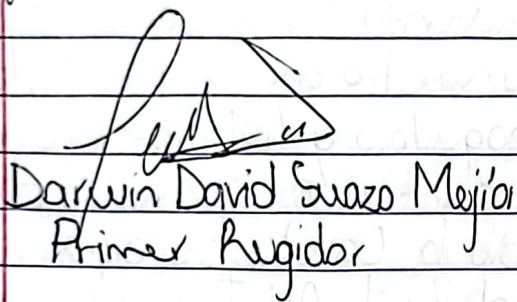 Darwin David Suazo Mejía
Primer Rugidor